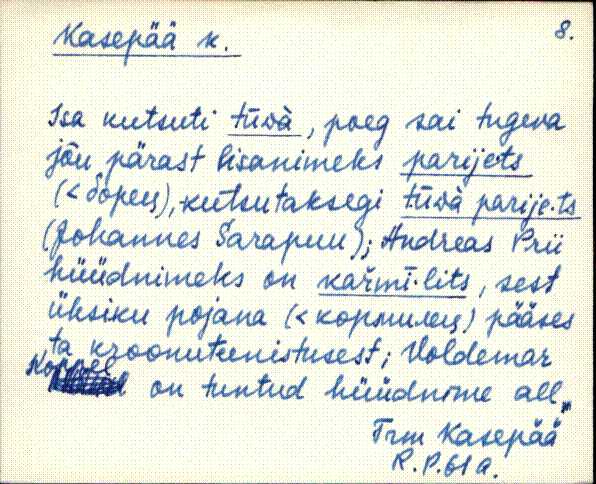 Kasepää k. 8.
Isa kutsuti tüwà, poeg sai tugeva
jõu pärast lisanimeks parijets
(< борец), kutsutaksegi tüwà parije·ts
(Johannes Sarapuu); Andreas Prii
hüüdnimeks on kařmī·lits, sest
üksiku pojana (< кормилец) pääses
ta kroonuteenistusest; Voldemar
Koppel on tuntud hüüdnime all„
Trm Kasepää
R. P. 61 a.